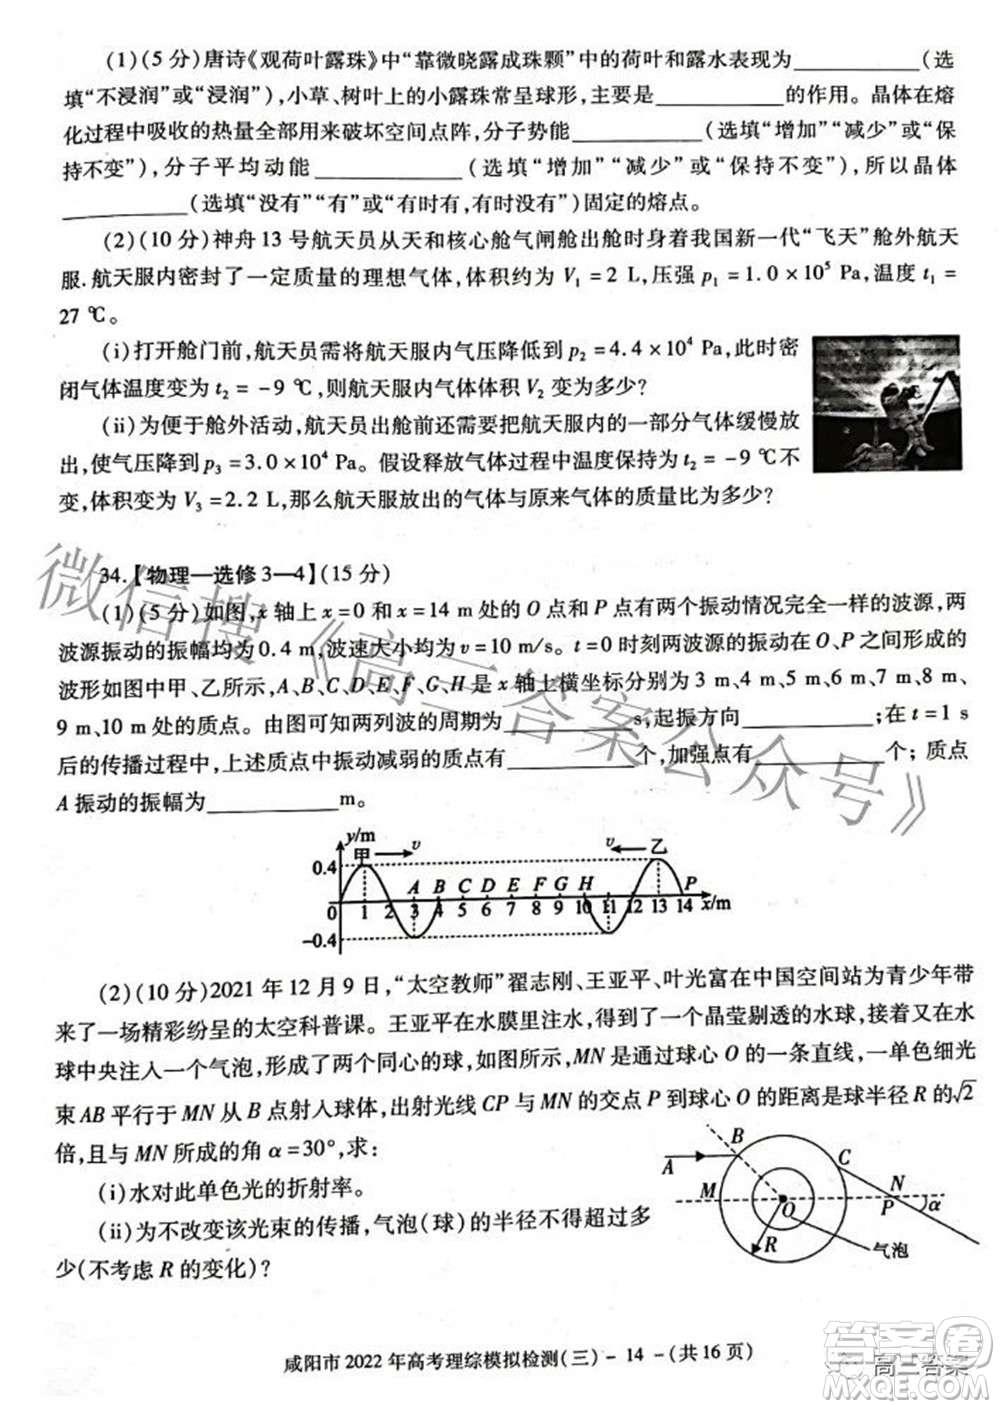 (1)(5 分)唐诗《观荷叶露珠》中“靠微晓露成珠颗”中的荷叶和露水表现为__________(选
填“不浸润”或“浸润”),小草、树叶上的小露珠常呈球形,主要是__________的作用。晶体在熔
化过程中吸收的热量全部用来破坏空间点阵,分子势能__________(选填“增加”“减少”或“保
持不变”),分子平均动能__________(选填“增加”“减少”或“保持不变”),所以晶体
__________(选填“没有”“有”或“有时有,有时没有”)固定的熔点。
(2)(10 分)神舟 13 号航天员从天和核心舱气闸舱出舱时身着我国新一代“飞天”舱外航天
服.航天服内密封了一定质量的理想气体,体积约为 V₁=2 L,压强 p₁=1.0×10⁵ Pa,温度 t₁=
27 ℃。
(i)打开舱门前,航天员需将航天服内气压降低到 p₂=4.4×10⁴ Pa,此时密
闭气体温度变为 t₂=-9 ℃,则航天服内气体体积 V₂ 变为多少?
(ii)为便于舱外活动,航天员出舱前还需要把航天服内的一部分气体缓慢放
出,使气压降到 p₃=3.0×10⁴ Pa。假设释放气体过程中温度保持为 t₂=-9 ℃不
变,体积变为 V₃=2.2 L,那么航天服放出的气体与原来气体的质量比为多少?
34.【物理—选修3—4】(15 分)
(1)(5 分)如图,x 轴上 x=0 和 x=14 m 处的 O 点和 P 点有两个振动情况完全一样的波源,两
波源振动的振幅均为 0.4 m,波速大小均为 v=10 m/s。t=0 时刻两波源的振动在 O、P 之间形成的
波形如图中甲、乙所示,A、B、C、D、E、F、G、H 是 x 轴上横坐标分别为 3 m、4 m、5 m、6 m、7 m、8 m、
9 m、10 m 处的质点。由图可知两列波的周期为__________s,起振方向__________;在 t=1 s
后的传播过程中,上述质点中振动减弱的质点有__________个,加强点有__________个;质点
A 振动的振幅为__________m。
y/m
甲 v v 乙
0.4
A B C D E F G H P
0 1 2 3 4 5 6 7 8 9 10 11 12 13 14 x/m
-0.4
(2)(10 分)2021 年 12 月 9 日,“太空教师”翟志刚、王亚平、叶光富在中国空间站为青少年带
来了一场精彩纷呈的太空科普课。王亚平在水膜里注水,得到了一个晶莹剔透的水球,接着在水
球中央注入一个气泡,形成了两个同心的球,如图所示,MN 是通过球心 O 的一条直线,一单色细光
束 AB 平行于 MN 从 B 点射入球体,出射光线 CP 与 MN 的交点 P 到球心 O 的距离是球半径 R 的√2
倍,且与 MN 所成的角 α=30°,求:
(i)水对此单色光的折射率。
(ii)为不改变该光束的传播,气泡(球)的半径不得超过多
少(不考虑 R 的变化)?
A B C M O N P α R 气泡
咸阳市 2022 年高考理综模拟检测(三)- 14 -(共 16 页)
微信搜《高三答案公众号》
高三答案
MXQE.COM